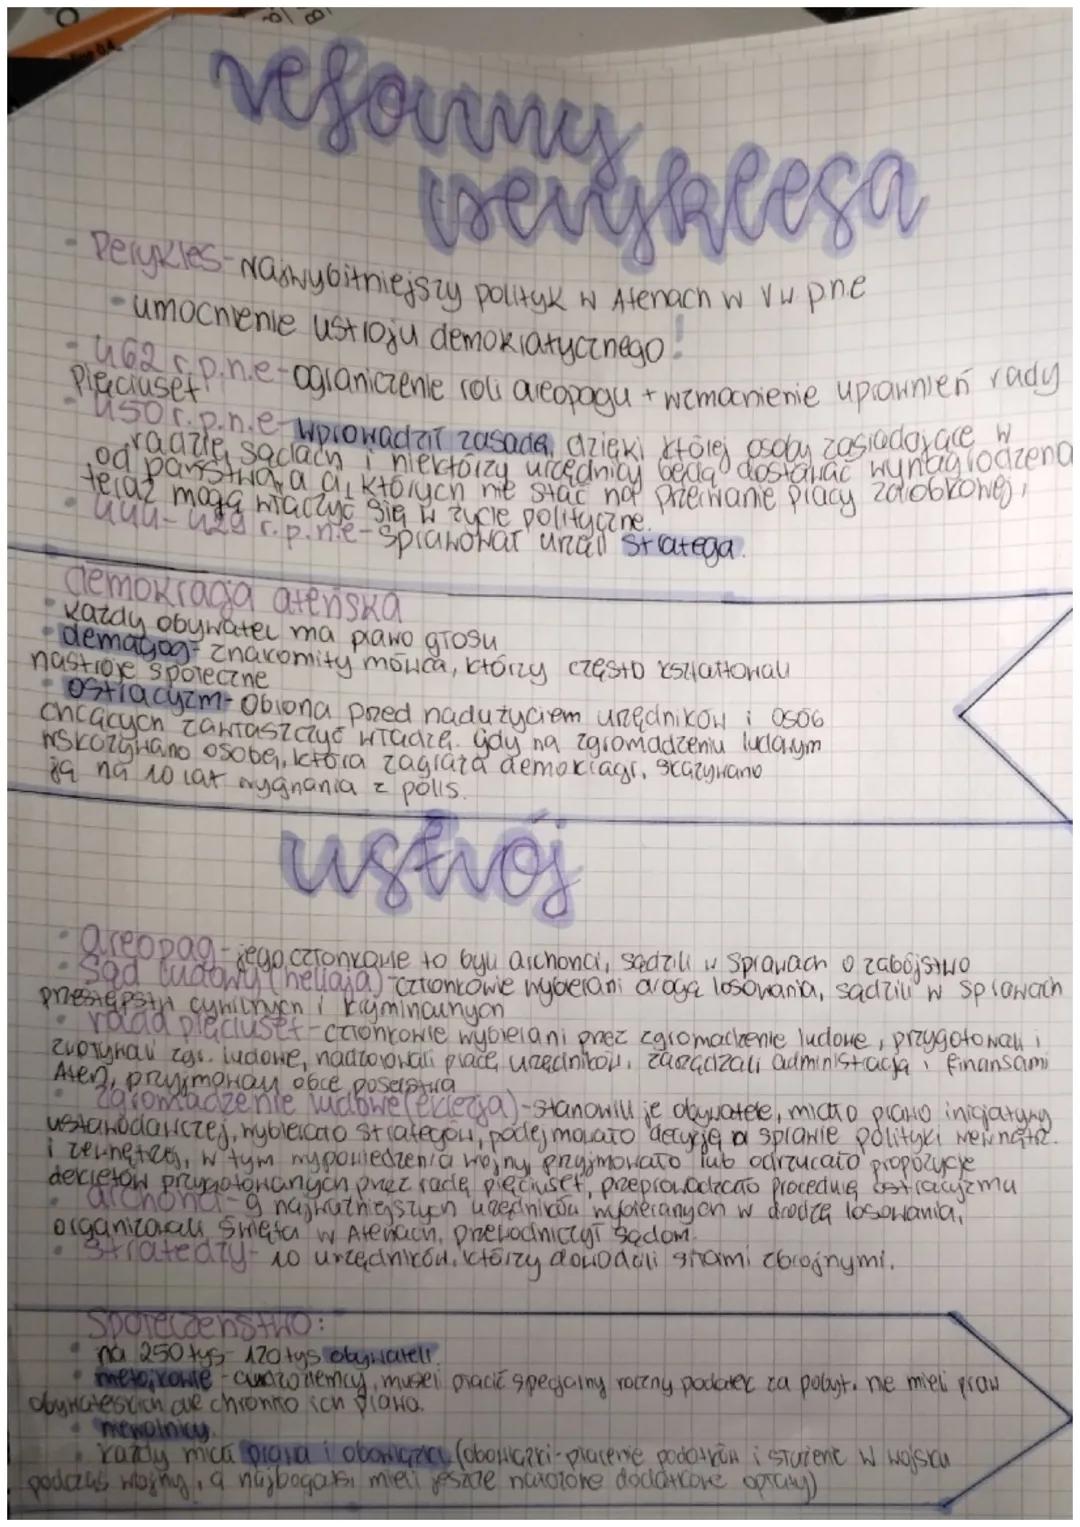 reformy
Peryklesa
Perykles - Najwybitniejszy polityk w Atenach w V w p.n.e
umocnienie ustroju demokratycznego!
462 r.p.n.e - ograniczenie roli areopagu + wzmocnienie uprawnień rady
Pięciuset
450 r.p.n.e - wprowadził zasadę, dzięki której osoby zasiadające w
radzie, sądach i niektórzy urzędnicy będą dostawać wynagrodzenia
od państwa, a ci, których nie stać na przerwanie pracy zarobkowej,
teraz mogą włączyć się w życie polityczne.
444-429 r.p.n.e - sprawował urząd stratega.
demokracja ateńska
każdy obywatel ma prawo głosu
demagog - znakomity mówca, którzy często kształtowali
nastroje społeczne
ostracyzm - obrona przed nadużyciem urzędników i osób
chcących zawłaszczyć władzę. gdy na zgromadzeniu ludowym
wskazywano osobę, która zagraża demokracji, skazywano
ją na 10 lat wygnania z polis.
ustrój
areopag - jego członkowie to byli archonci, sądzili w sprawach o zabójstwo
Sąd ludowy (heliaja) - członkowie wybierani drogą losowania, sądzili w sprawach
przestępstw cywilnych i kryminalnych
rada pięciuset - członkowie wybierani przez zgromadzenie ludowe, przygotowali i
zwoływali zgr. ludowe, nadzorowali pracę urzędników, zarządzali administracją i finansami
Aten, przyjmowali obce poselstwa
Zgromadzenie ludowe (eklezja) - stanowili je obywatele, miało prawo inicjatywy
ustawodawczej, wybierało strategów, podejmowało decyzję w sprawie polityki wewnętrz.
i zewnętrzej, w tym wypowiedzenia wojny, przyjmowało lub odrzucało propozycje
dekretów przygotowanych przez radę pięciuset, przeprowadzało procedurę ostracyzmu
archonci - 9 najważniejszych urzędników wybieranych w drodzę losowania,
organizowali święta w Atenach, przewodniczyl sądom.
stratedzy - 10 urzędników, którzy dowodzili siłami zbrojnymi.
Społeczeństwo:
na 250 tys - 120 tys obywateli.
metojkowie - cudzoziemcy, musieli płacić specjalny roczny podatek za pobyt. nie mieli praw
obywatelskich ale chroniło ich prawa.
niewolnicy.
każdy miał prawa i obowiązki (obowiązki - płacenie podatków i służenie w wojsku
podczas wojny, a najbogatsi mieli jeszcze nałożone dodatkowe opłaty)